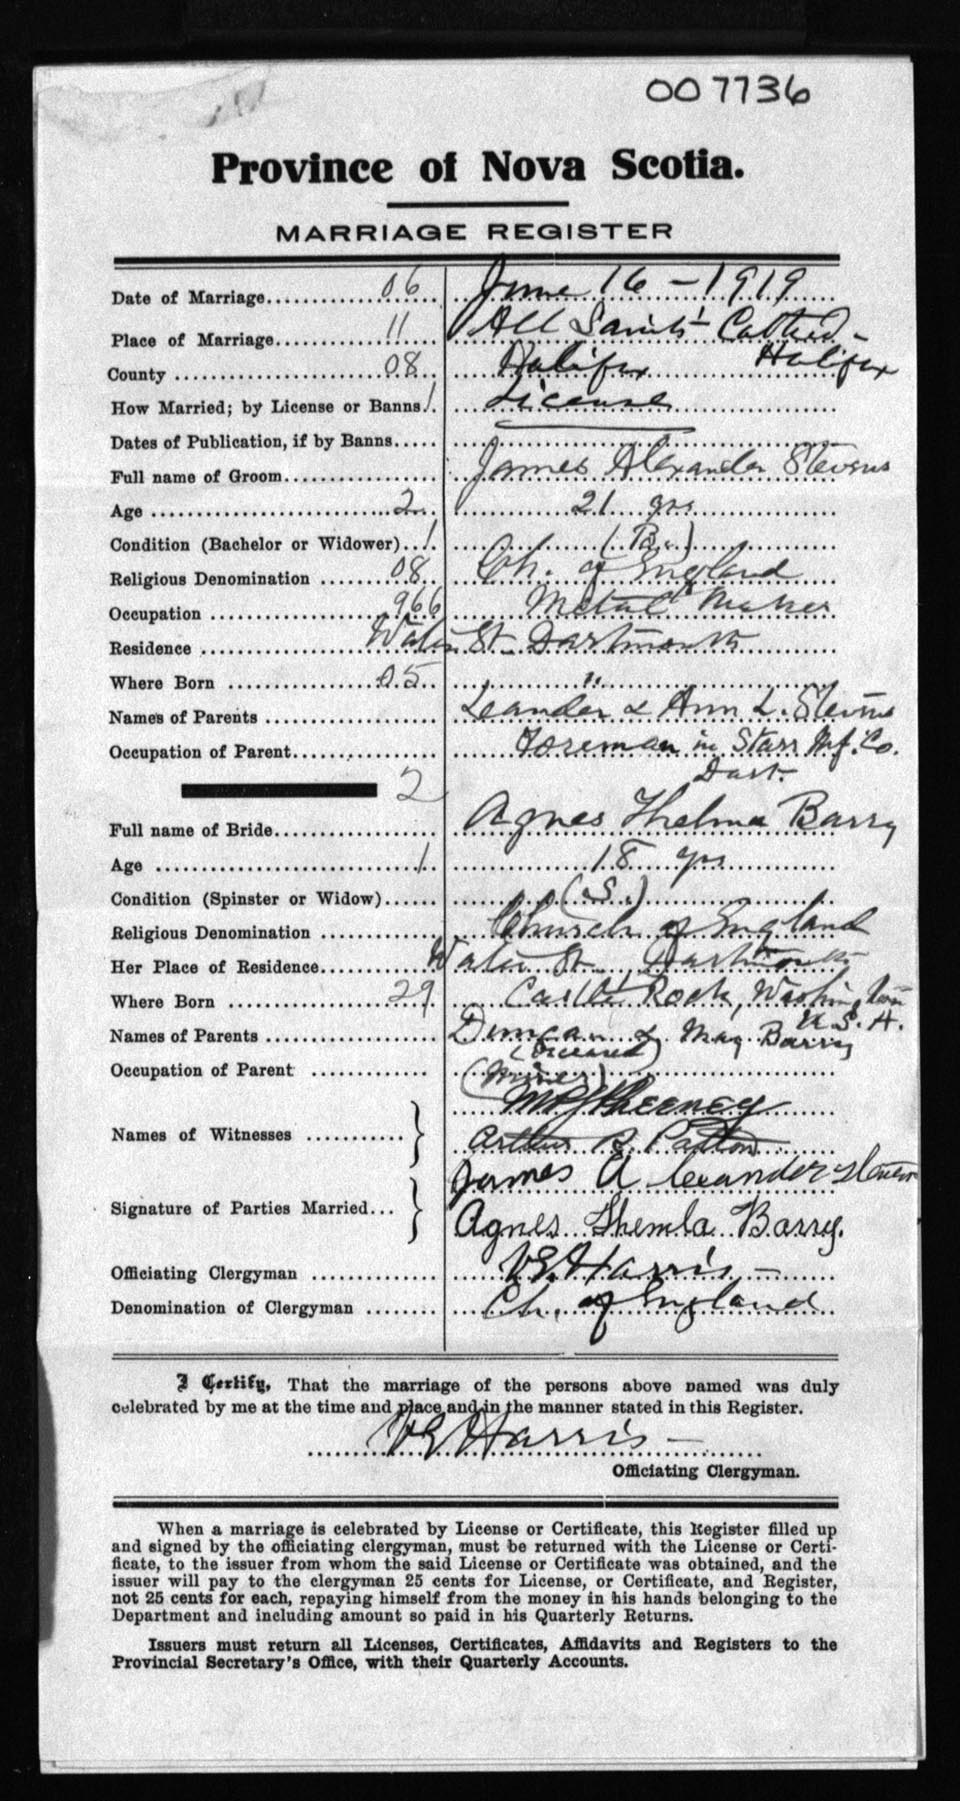 007736
Province of Nova Scotia.
MARRIAGE REGISTER
Date of Marriage 06 June 16 - 1919
Place of Marriage 11 All Saints' Cathed - Halifax
County 08 Halifax
How Married; by License or Banns 1 License
Dates of Publication, if by Banns
Full name of Groom James Alexander Stevens
Age 2 21 yrs
Condition (Bachelor or Widower) 1 (B.)
Religious Denomination 08 Ch. of England
Occupation 966 Metal Maker
Residence Water St. Dartmouth
Where Born 05 "
Names of Parents Leander & Ann L. Stevens
Occupation of Parent Foreman in Starr Mf. Co.
Dart.
2
Full name of Bride Agnes Thelma Barry
Age 1 18 yrs
Condition (Spinster or Widow) (S.)
Religious Denomination Church of England
Her Place of Residence Water St. Dartmouth
Where Born 29 Castle Rock, Washington
U.S.A.
Names of Parents Duncan & May Barry
(deceased)
Occupation of Parent (Miner)
Names of Witnesses
Arthur
Signature of Parties Married James Alexander Stevens
Agnes Themla Barry.
Officiating Clergyman VE Harris -
Denomination of Clergyman Ch. of England
I Certify, That the marriage of the persons above named was duly
celebrated by me at the time and place and in the manner stated in this Register.
VE Harris -
Officiating Clergyman.
When a marriage is celebrated by License or Certificate, this Register filled up
and signed by the officiating clergyman, must be returned with the License or Certi-
ficate, to the issuer from whom the said License or Certificate was obtained, and the
issuer will pay to the clergyman 25 cents for License, or Certificate, and Register,
not 25 cents for each, repaying himself from the money in his hands belonging to the
Department and including amount so paid in his Quarterly Returns.
Issuers must return all Licenses, Certificates, Affidavits and Registers to the
Provincial Secretary's Office, with their Quarterly Accounts.